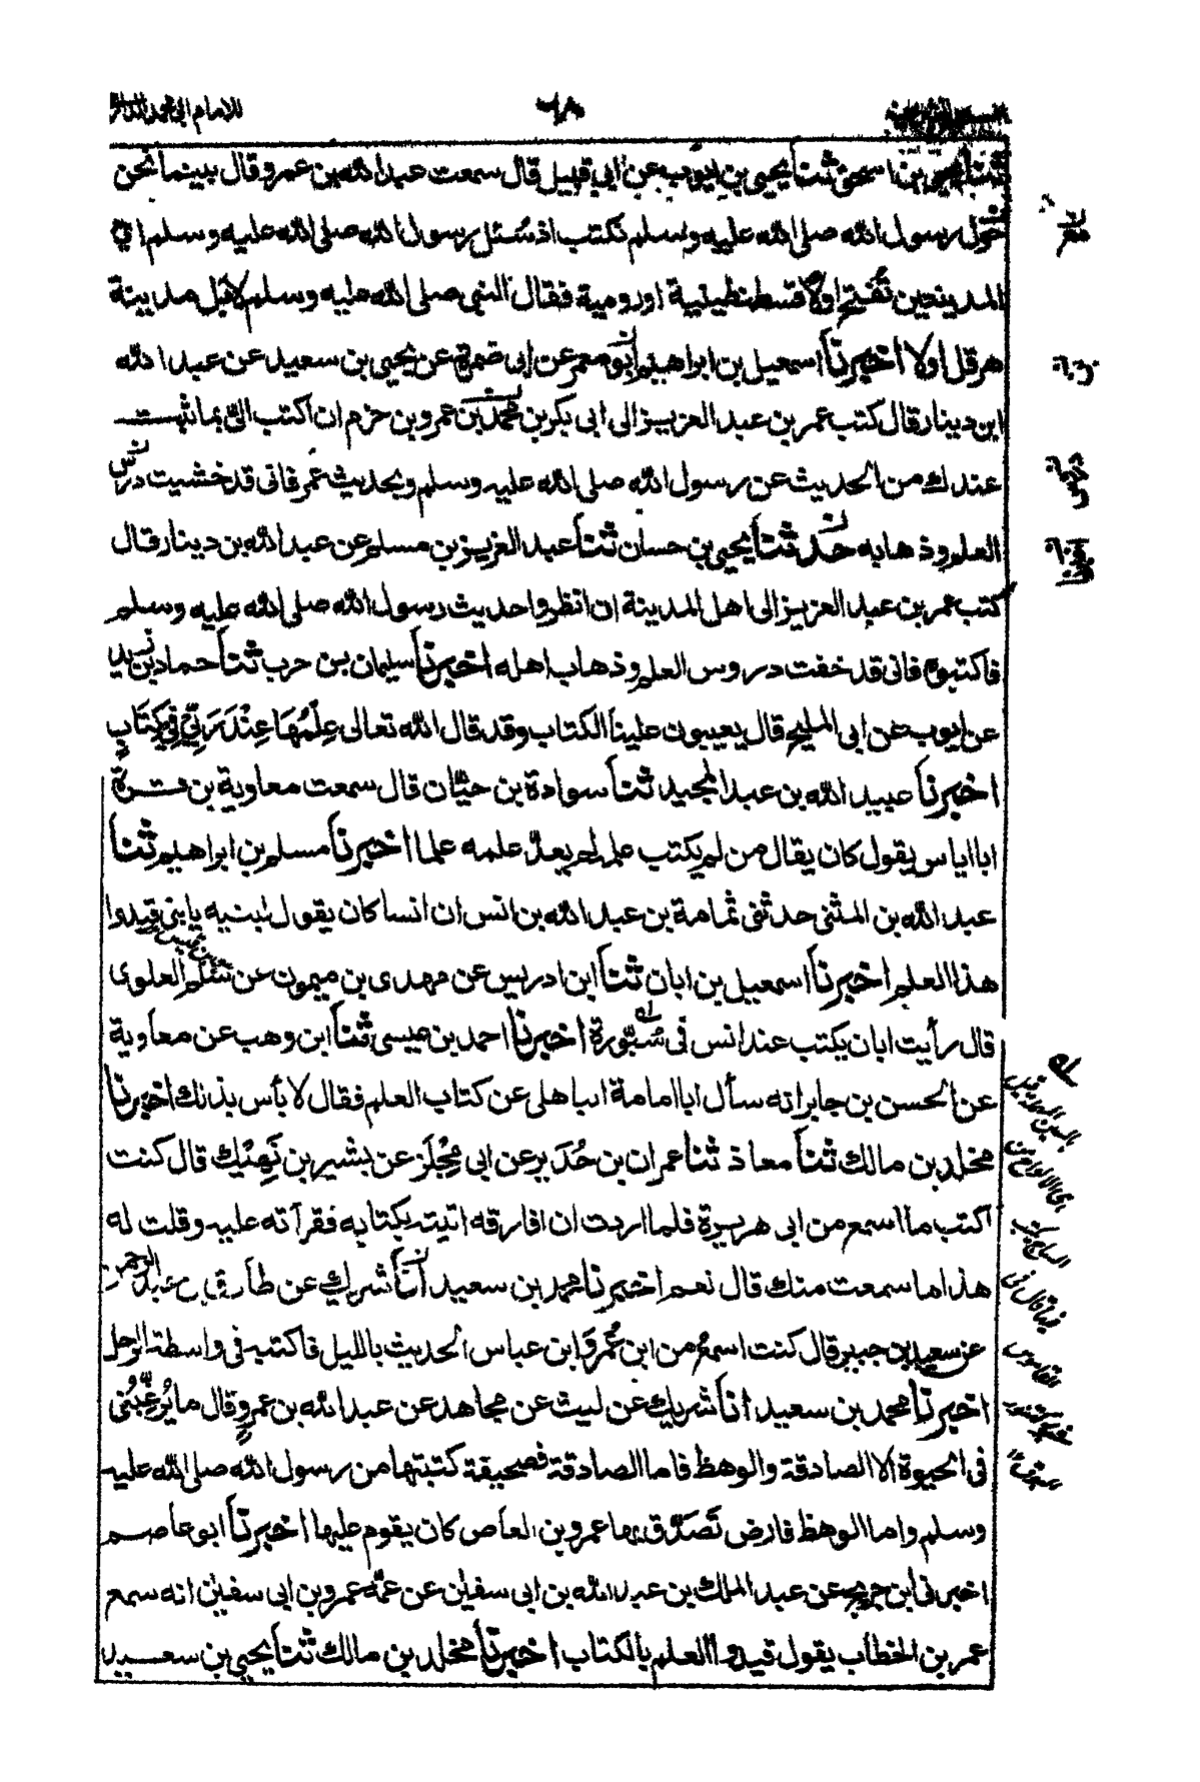 للامام ابی محمد الدارمی
٦٨
ثنا يحيى بن اسحق ثنا يحيى بن ايوب عن ابی قبيل قال سمعت عبد الله بن عمرو قال بينما نحن
حول رسول الله صلى الله عليه وسلم نكتب اذ سُئل رسول الله صلى الله عليه وسلم ای
المدينتين تُفتح اولا قسطنطينية او رومية فقال النبی صلى الله عليه وسلم لا بل مدينة
هرقل اولا اخبرنا اسمعيل بن ابراهيم ابو معمر عن ابی ضمرة عن يحيى بن سعيد عن عبد الله
ابن دينار قال كتب عمر بن عبد العزيز الى ابی بكر بن محمد بن عمرو بن حزم ان اكتب الیّ بما ثبت
عندك من الحديث عن رسول الله صلى الله عليه وسلم وبحديث عمر فانی قد خشيت درس
العلم وذهابه حدثنا يحيى بن حسان ثنا عبد العزيز بن مسلم عن عبد الله بن دينار قال
كتب عمر بن عبد العزيز الى اهل المدينة ان انظروا حديث رسول الله صلى الله عليه وسلم
فاكتبوه فانی قد خفت دروس العلم وذهاب اهله اخبرنا سليمان بن حرب ثنا حماد بن زيد
عن ايوب عن ابی المليح قال يعيبون علينا الكتاب وقد قال الله تعالى عِلْمُهَا عِنْدَ رَبِّیْ فِیْ كِتَابٍ
اخبرنا عبيد الله بن عبد المجيد ثنا سوادة بن حيّان قال سمعت معاوية بن قرة
ابا اياس يقول كان يقال من لم يكتب علمه لم يعدّ علمه علما اخبرنا مسلم بن ابراهيم ثنا
عبد الله بن المثنى حدثنی ثمامة بن عبد الله بن انس ان انسا كان يقول لبنيه يا بنی قيدوا
هذا العلم اخبرنا اسمعيل بن ابان ثنا ابن ادريس عن مهدی بن ميمون عن سَلْم العلوی
قال رأيت ابان يكتب عند انس فی سُبّورة اخبرنا احمد بن عيسى ثنا ابن وهب عن معاوية
عن الحسن بن جابر انه سأل ابا امامة الباهلی عن كتاب العلم فقال لا بأس بذلك اخبرنا
مخلد بن مالك ثنا معاذ ثنا عمران بن حُدَير عن ابی مِجْلَز عن بشير بن نَهِيْك قال كنت
اكتب ما اسمع من ابی هريرة فلما اردت ان افارقه اتيته بكتابه فقرأته عليه وقلت له
هذا ما سمعت منك قال نعم اخبرنا محمد بن سعيد انا شريك عن طارق بن عبد الرحمن
عن سعيد بن جبير قال كنت اسمع من ابن عُمر وَابن عباس الحديث بالليل فاكتبه فی واسطة الرحل
اخبرنا محمد بن سعيد انا شريك عن ليث عن مجاهد عن عبد الله بن عمرو قال ما يُرَغِّبُنی
فی الحيوة الا الصادقة والوهط فاما الصادقة فصحيفة كتبتها من رسول الله صلى الله عليه
وسلم واما الوهط فارض تَصَدَّق بها عمرو بن العاص كان يقوم عليها اخبرنا ابو عاصم
اخبرنی ابن جريج عن عبد الملك بن عبد الله بن ابی سفيٰن عن عمّه عمرو بن ابی سفيٰن انه سمع
عمر بن الخطاب يقول قيدوا العلم بالكتاب اخبرنا مخلد بن مالك ثنا يحيى بن سعيد